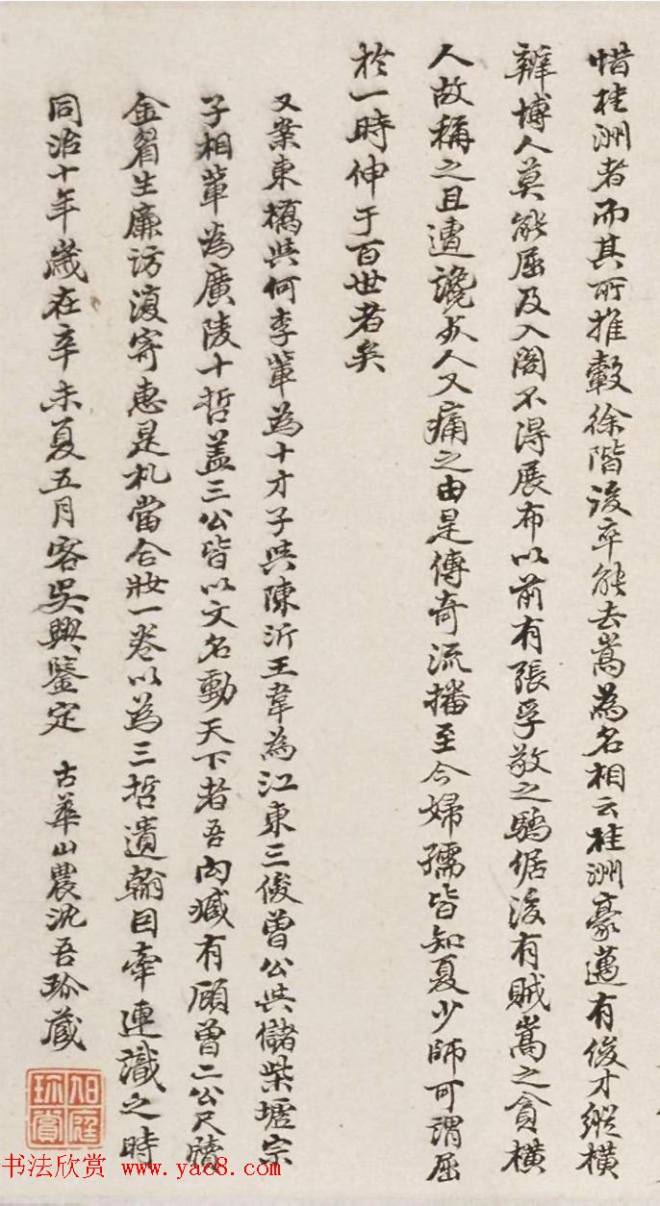 惜桂洲者而其所推轂徐階後卒能去嵩為名相云桂洲豪邁有俊才縱橫
辯博人莫能屈及入閣不得展布以前有張孚敬之驕倨後有賊嵩之貪橫
人故稱之且遭讒死人又痛之由是傳奇流播至今婦孺皆知夏少師可謂屈
於一時伸于百世者矣
又案東橋與何李輩為十才子與陳沂王韋為江東三俊曾公與儲柴墟宗
子相輩為廣陵十哲蓋三公皆以文名動天下者吾內臧有顧曾二公尺牘
金眉生廉訪復寄惠是札當合妝一卷以為三哲遺翰因牽連識之時
同治十年歲在辛未夏五月客吳興鑒定 古華山農沈吾珍藏
旭庭珍賞
书法欣赏 www.yac8.com